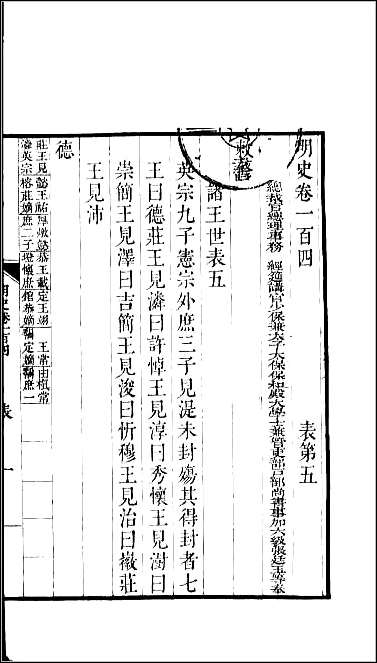 明史卷一百四
表第五
總裁官總理事務經筵講官少保兼太子太保保和殿大學士兼管吏部戶部尚書事加六級張廷玉等奉
敕修
諸王世表五
英宗九子憲宗外庶三子見湜未封殤其得封者七
王曰德莊王見潾曰許悼王見淳曰秀懷王見澍曰
崇簡王見澤曰吉簡王見浚曰忻穆王見治曰徽莊
王見沛
德
莊王見 懿王祐榰 懷王 恭王載 定王翊 王常 由樞常
潾英宗 莊嫡 庶二子 懷庶 恭嫡 定嫡 庶一
表
一